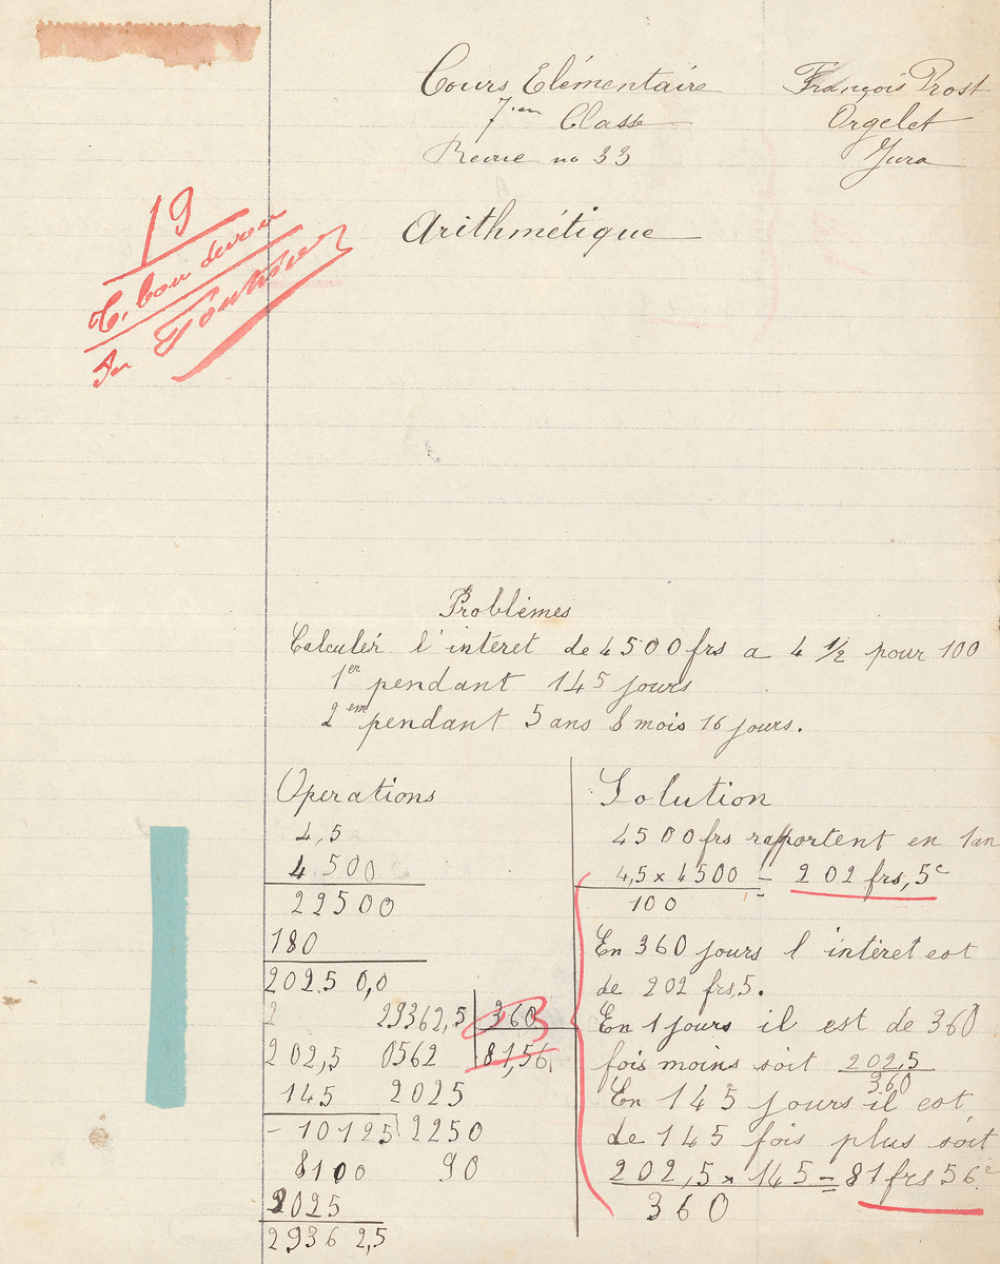 Cours Elémentaire
7ième Classe
Revue no 33
François Prost
Orgelet
Jura
19
T. bon devoir
Arithmétique
Problèmes
Calculér l'intéret de 4500 frs a 4 1/2 pour 100
1er pendant 145 jours
2em pendant 5 ans 8 mois 16 jours.
Operations
4,5
4 500
22500
180
2025 0,0
2
202,5
145
- 10125
8100
2025
2936 2,5
29362,5 360
0562 81,56
2025
2250
90
Solution
4500 frs rapportent en 1an
4,5 x 4500 = 202 frs,5c
100
En 360 jours l intéret est
de 202 frs,5.
En 1 jours il est de 360
fois moins soit 202,5
360
En 145 jours il est
de 145 fois plus soit
202,5 x 145 = 81 frs 56c
360